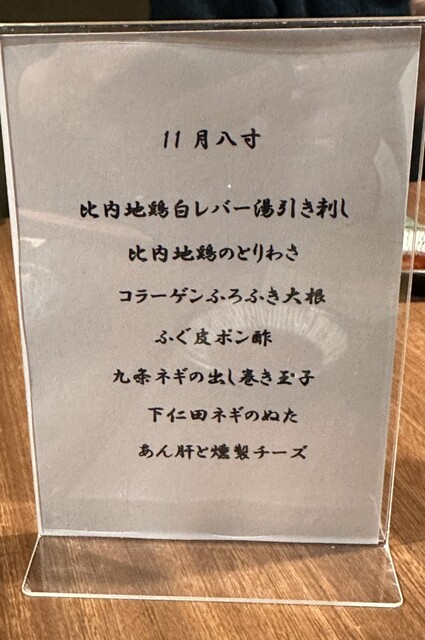 11月八寸
比内地鶏白レバー湯引き刺し
比内地鶏のとりわさ
コラーゲンふろふき大根
ふぐ皮ポン酢
九条ネギの出し巻き玉子
下仁田ネギのぬた
あん肝と燻製チーズ